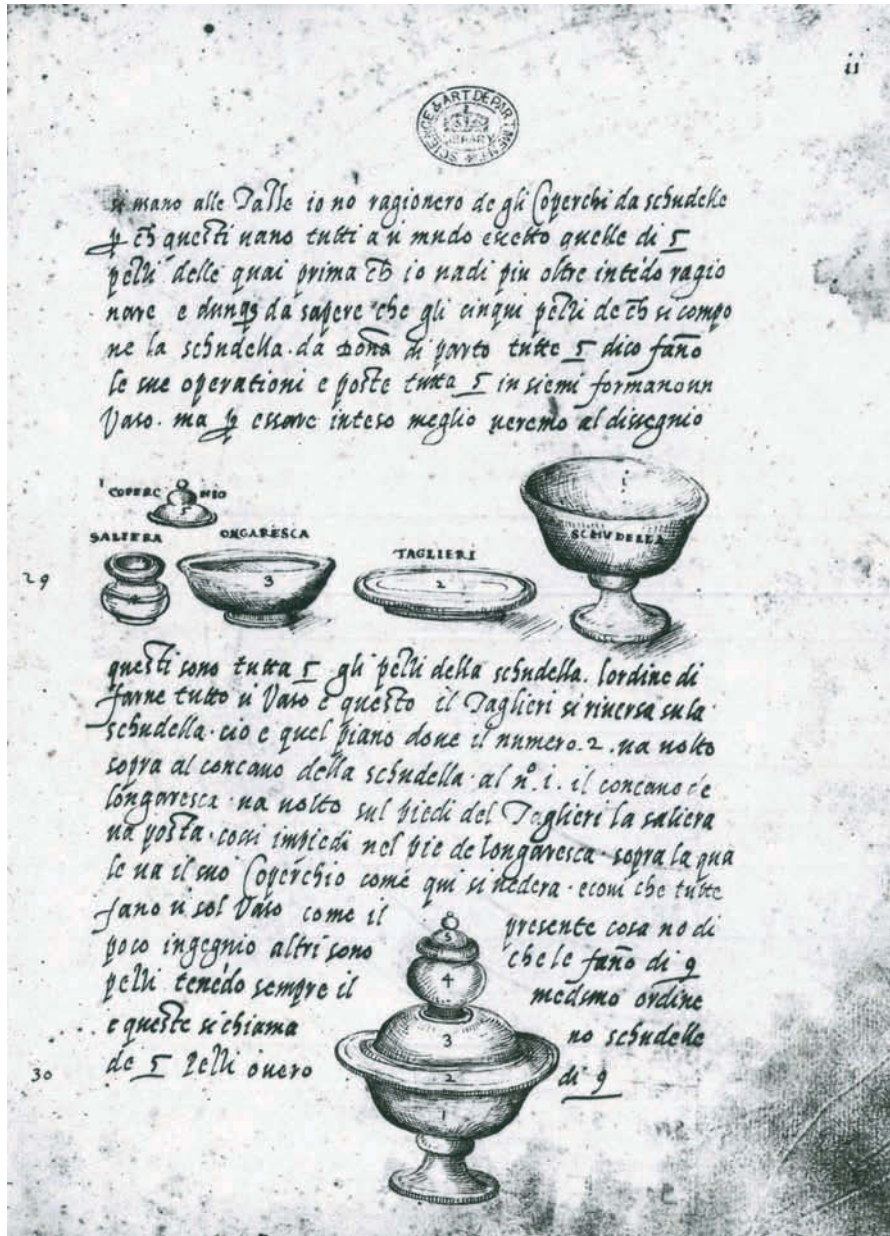 ii
SCIENCE & ART DEPARTMENT
LIBRARY
si usano alle Talle io nō ragionero de gli Coperchi da schudelle
questi uano tutti a ū mudo ecetto quelle di 5
pezzi delle quai prima io uadi piu oltre intēdo ragio
nare e da sapere che gli cinqui pezzi de si compo
ne la schudella da di parto tutte 5 dico fano
le sue operationi e poste tutta 5 in siemi formano un
Vaso. ma essere inteso meglio ueremo al dissegnio
COPERCHIO
5
SALIERA
ONGARESCA
TAGLIERI
SCHUDELLA
29
4
3
2
1
questi sono tutta 5 gli pezzi della schudella. lordine di
farne tutto ū Vaso e questo il Taglieri si riuersa su la
schudella. cio e quel piano doue il numero. 2. ua uolto
sopra al concauo della schudella. al nº. i. il concauo de
longaresca. ua uolto sul piedi del Taglieri la saliera
ua posta. cosi impiedi nel pie de longaresca. sopra la qua
le ua il suo Coperchio come qui si uedera. ecosi che tutte
fano ū sol Vaso come il presente cosa no di
poco ingegnio altri sono che le fano di 9
pezzi tenēdo sempre il medsmo ordine
e queste si chiama no schudelle
30
de 5 Pezzi ouero di 9
5
4
3
2
1